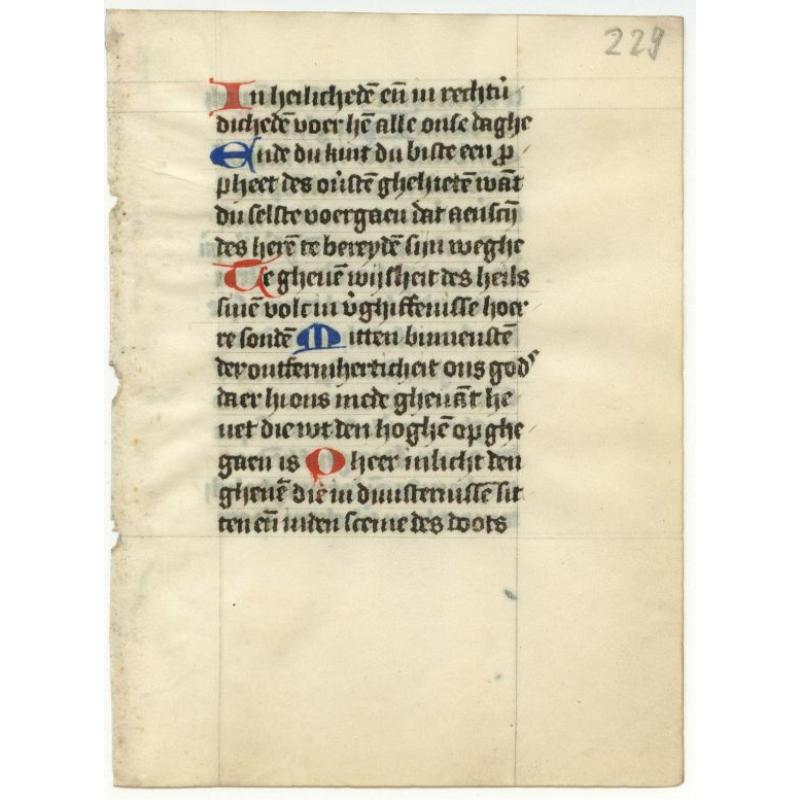 229
In heilichedē eñ in rechtů
dichedē voer hē alle onse daghe
Ende du kint du biste een p̄
pheet des ou̓stē ghehietē wāt
du selste voergaen dat aenscij
des herē te bereydē sijn weghe
Te gheuē wijsheit des heils
sinē volc in v̓ghiffenisse hoer
re sondē Mitten binnenstē
der ontfermherticheit ons god'
daer hi ons mede gheuāt he
uet die wt den hoghē op ghe
gaen is O heer inlicht den
ghenē die in duusternissē sit
ten eñ inden sceme des doots